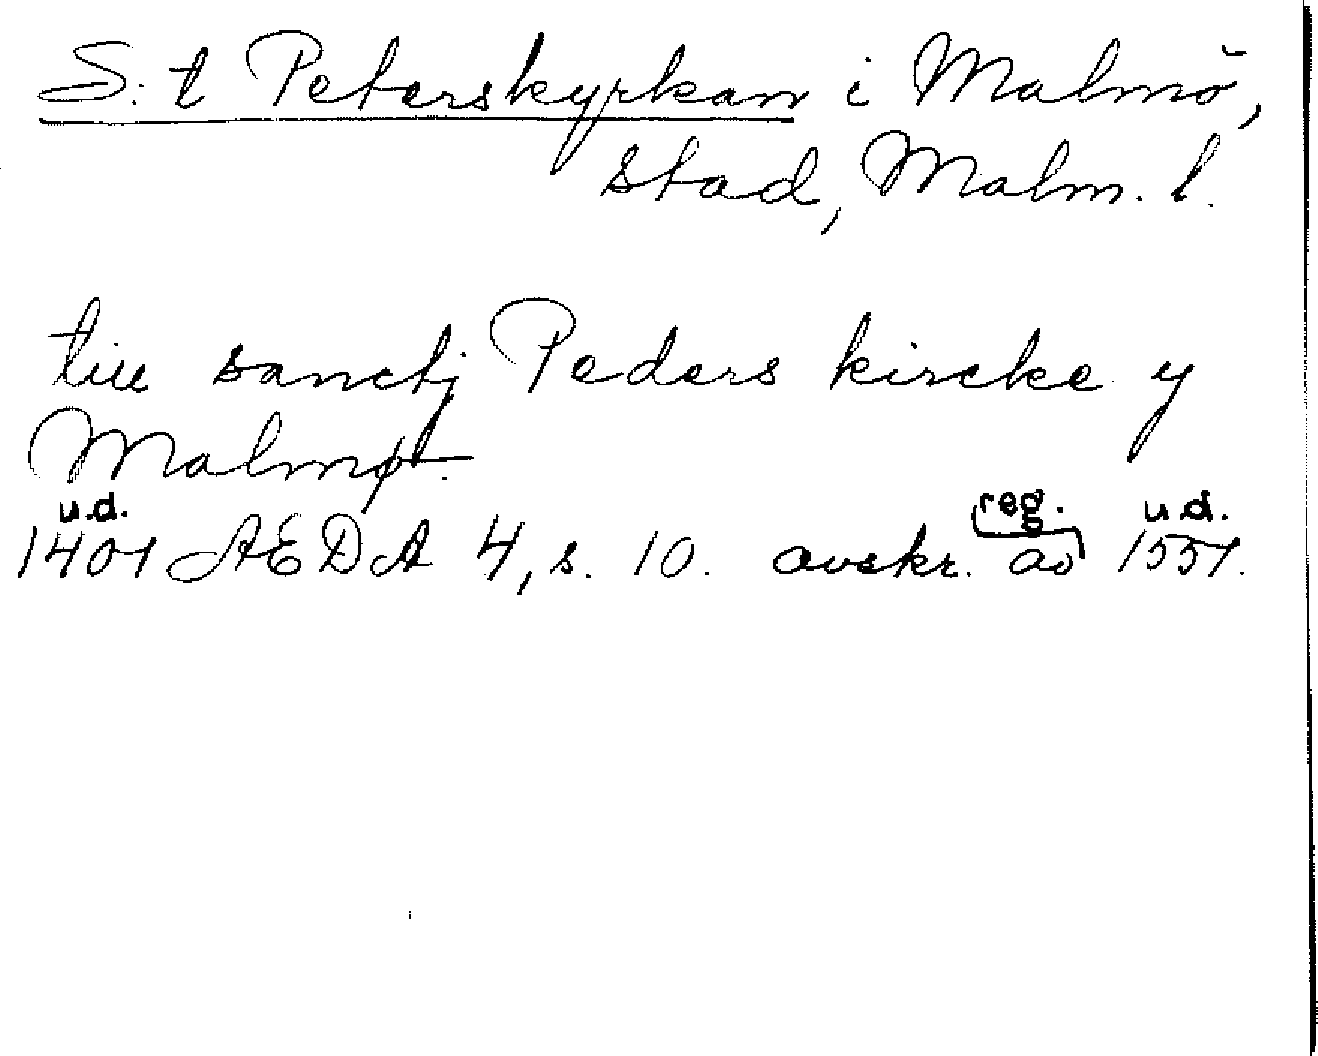 S:t Peterskyrkan i Malmö,
stad, Malm. l.
till sanctj Peders kircke y
Malmø.
u.d. reg. u.d.
1401 AEDA 4, s. 10. avskr. av 1551.